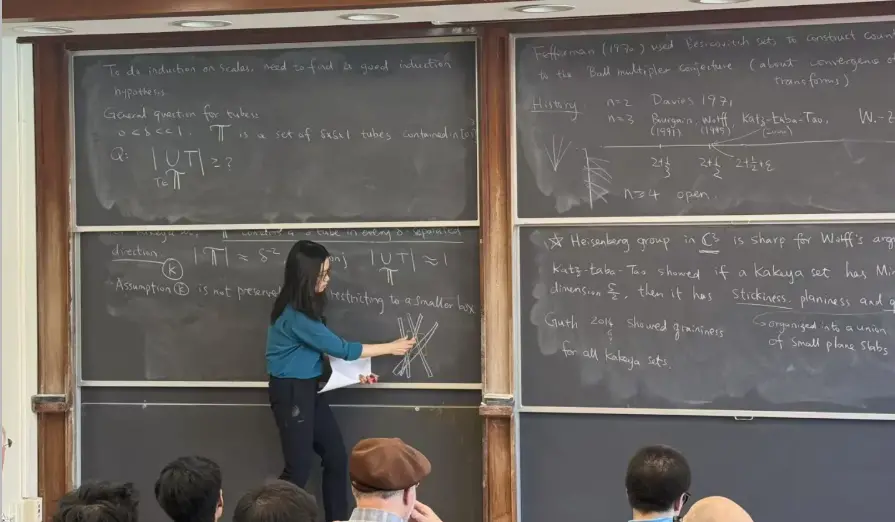 To do induction on scales, need to find a good induction
hypothesis.
General question for tubes:
0 < δ << 1, 𝕋 is a set of δxδx1 tubes contained in
Q: | ∪ T | ≥ ?
T∈𝕋
𝕋 contains a δ tube in every δ-separated
direction (K) |𝕋| ≈ δ⁻² | ∪ T | ≈ 1
𝕋
Assumption (K) is not restricting to a smaller box
Fefferman (1970) used Besicovitch sets to construct
to the Ball multiplier conjecture (about convergence of
transforms)
History n=2 Davies 1971
n=3 Bourgain, Wolff, Katz-Łaba-Tao, W.-
(1991) (1995) (2000)
2+1/3 2+1/2 2+1/2+ε
n≥4 open.
☆ Heisenberg group in ℂ³ is sharp for Wolff's
Katz-Łaba-Tao showed if a Kakeya set has
dimension 5/2, then it has stickiness, planiness and
organized into a union
of small plane slabs
Guth 2016 showed graininess
for all Kakeya sets.